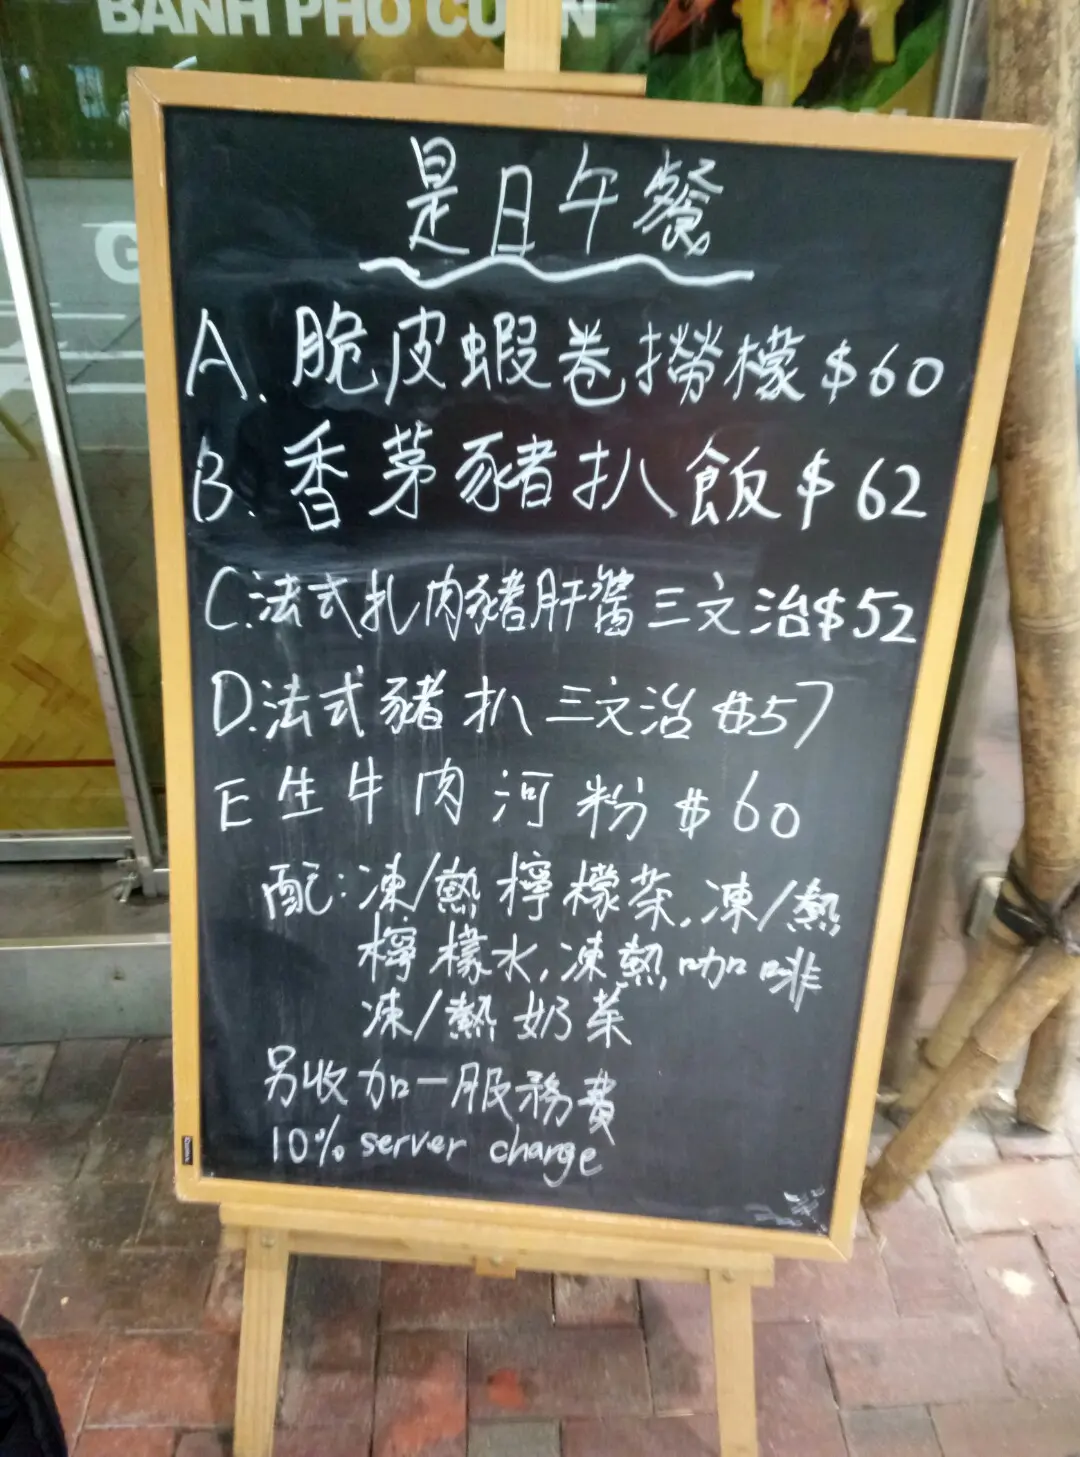 BANH PHO CU
是日午餐
A. 脆皮蝦卷撈檬 $60
B. 香茅豬扒飯 $62
C. 法式扎肉豬肝醬三文治 $52
D. 法式豬扒三文治 $57
E 生牛肉河粉 $60
配: 凍/熱檸檬茶, 凍/熱
檸檬水, 凍熱咖啡
凍/熱奶茶
另收加一服務費
10% server charge